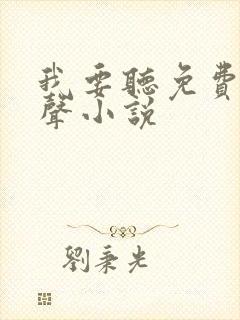 我要聽免費
聲小説
劉秉光